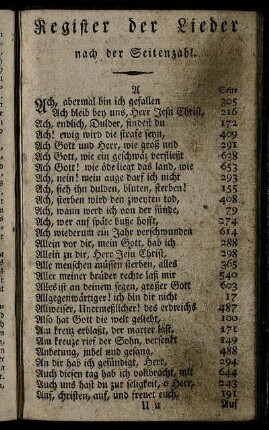 Register der Lieder
nach der Seitenzahl.
A
Seite
Ach, abermal bin ich gefallen 305
Ach bleib bey uns, Herr Jesu Christ, 216
Ach, endlich, Dulder, findest du 172
Ach! ewig wird die strafe seyn, 409
Ach Gott und Herr, wie groß und 291
Ach Gott, wie ein geschwäz verfließt 638
Ach Gott! wie öde liegt das land, wie 653
Ach, nein! mein auge darf ich nicht 293
Ach, sieh ihn dulden, bluten, sterben! 155
Ach, sterben wird den zweyten tod, 408
Ach, wann werd ich von der sünde, 79
Ach, wer auf späte buße hofft, 274
Ach wiederum ein Jahr verschwunden 614
Allein vor dir, mein Gott, hab ich 288
Allein zu dir, Herr Jesu Christ, 298
Alle menschen müssen sterben, alles 365
Aller meiner brüder rechte laß mir 540
Alles ist an deinem segen, großer Gott 603
Allgegenwärtiger! ich bin dir nicht 17
Allweiser, Unermeßlicher! des erdreichs 487
Also hat Gott die welt geliebt, 100
Am kreuz erblaßt, der marter last, 171
Am kreuze rief der Sohn, versenkt 149
Anbetung, jubel und gesang, 488
An dir hab ich gesündiget, Herr, 294
Auch diesen tag hab ich vollbracht, mit 644
Auch uns hast du zur seligkeit, o Herr, 243
Auf, christen, auf, und freuet euch, 191
U u Auf